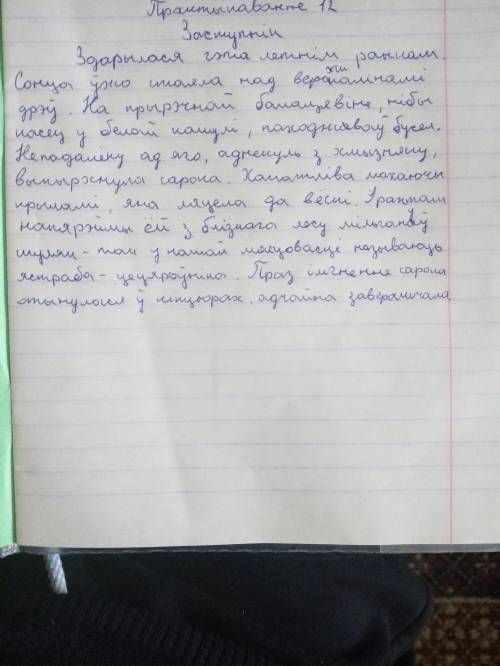 Практыкаванне 12
Заступнік
Здарылася гэта летнім ранкам.
Сонца ўжо стаяла над верхавінамі
дрэў. На прырэчнай балацявіне, нібы
касец у белай кашулі, паходжваў бусел.
Непадалёку ад яго, аднекуль з хмызняку,
выпырхнула сарока. Хапатліва махаючы
крыламі, яна ляцела да вёскі. І раптам
напярэймы ёй з блізкага лесу мільгануў
шуляк - так у нашай мясцовасці называюць
ястраба - цецяроўніка. Праз імгненне сарока
апынулася ў кіпцюрах, адчайна заверашчала